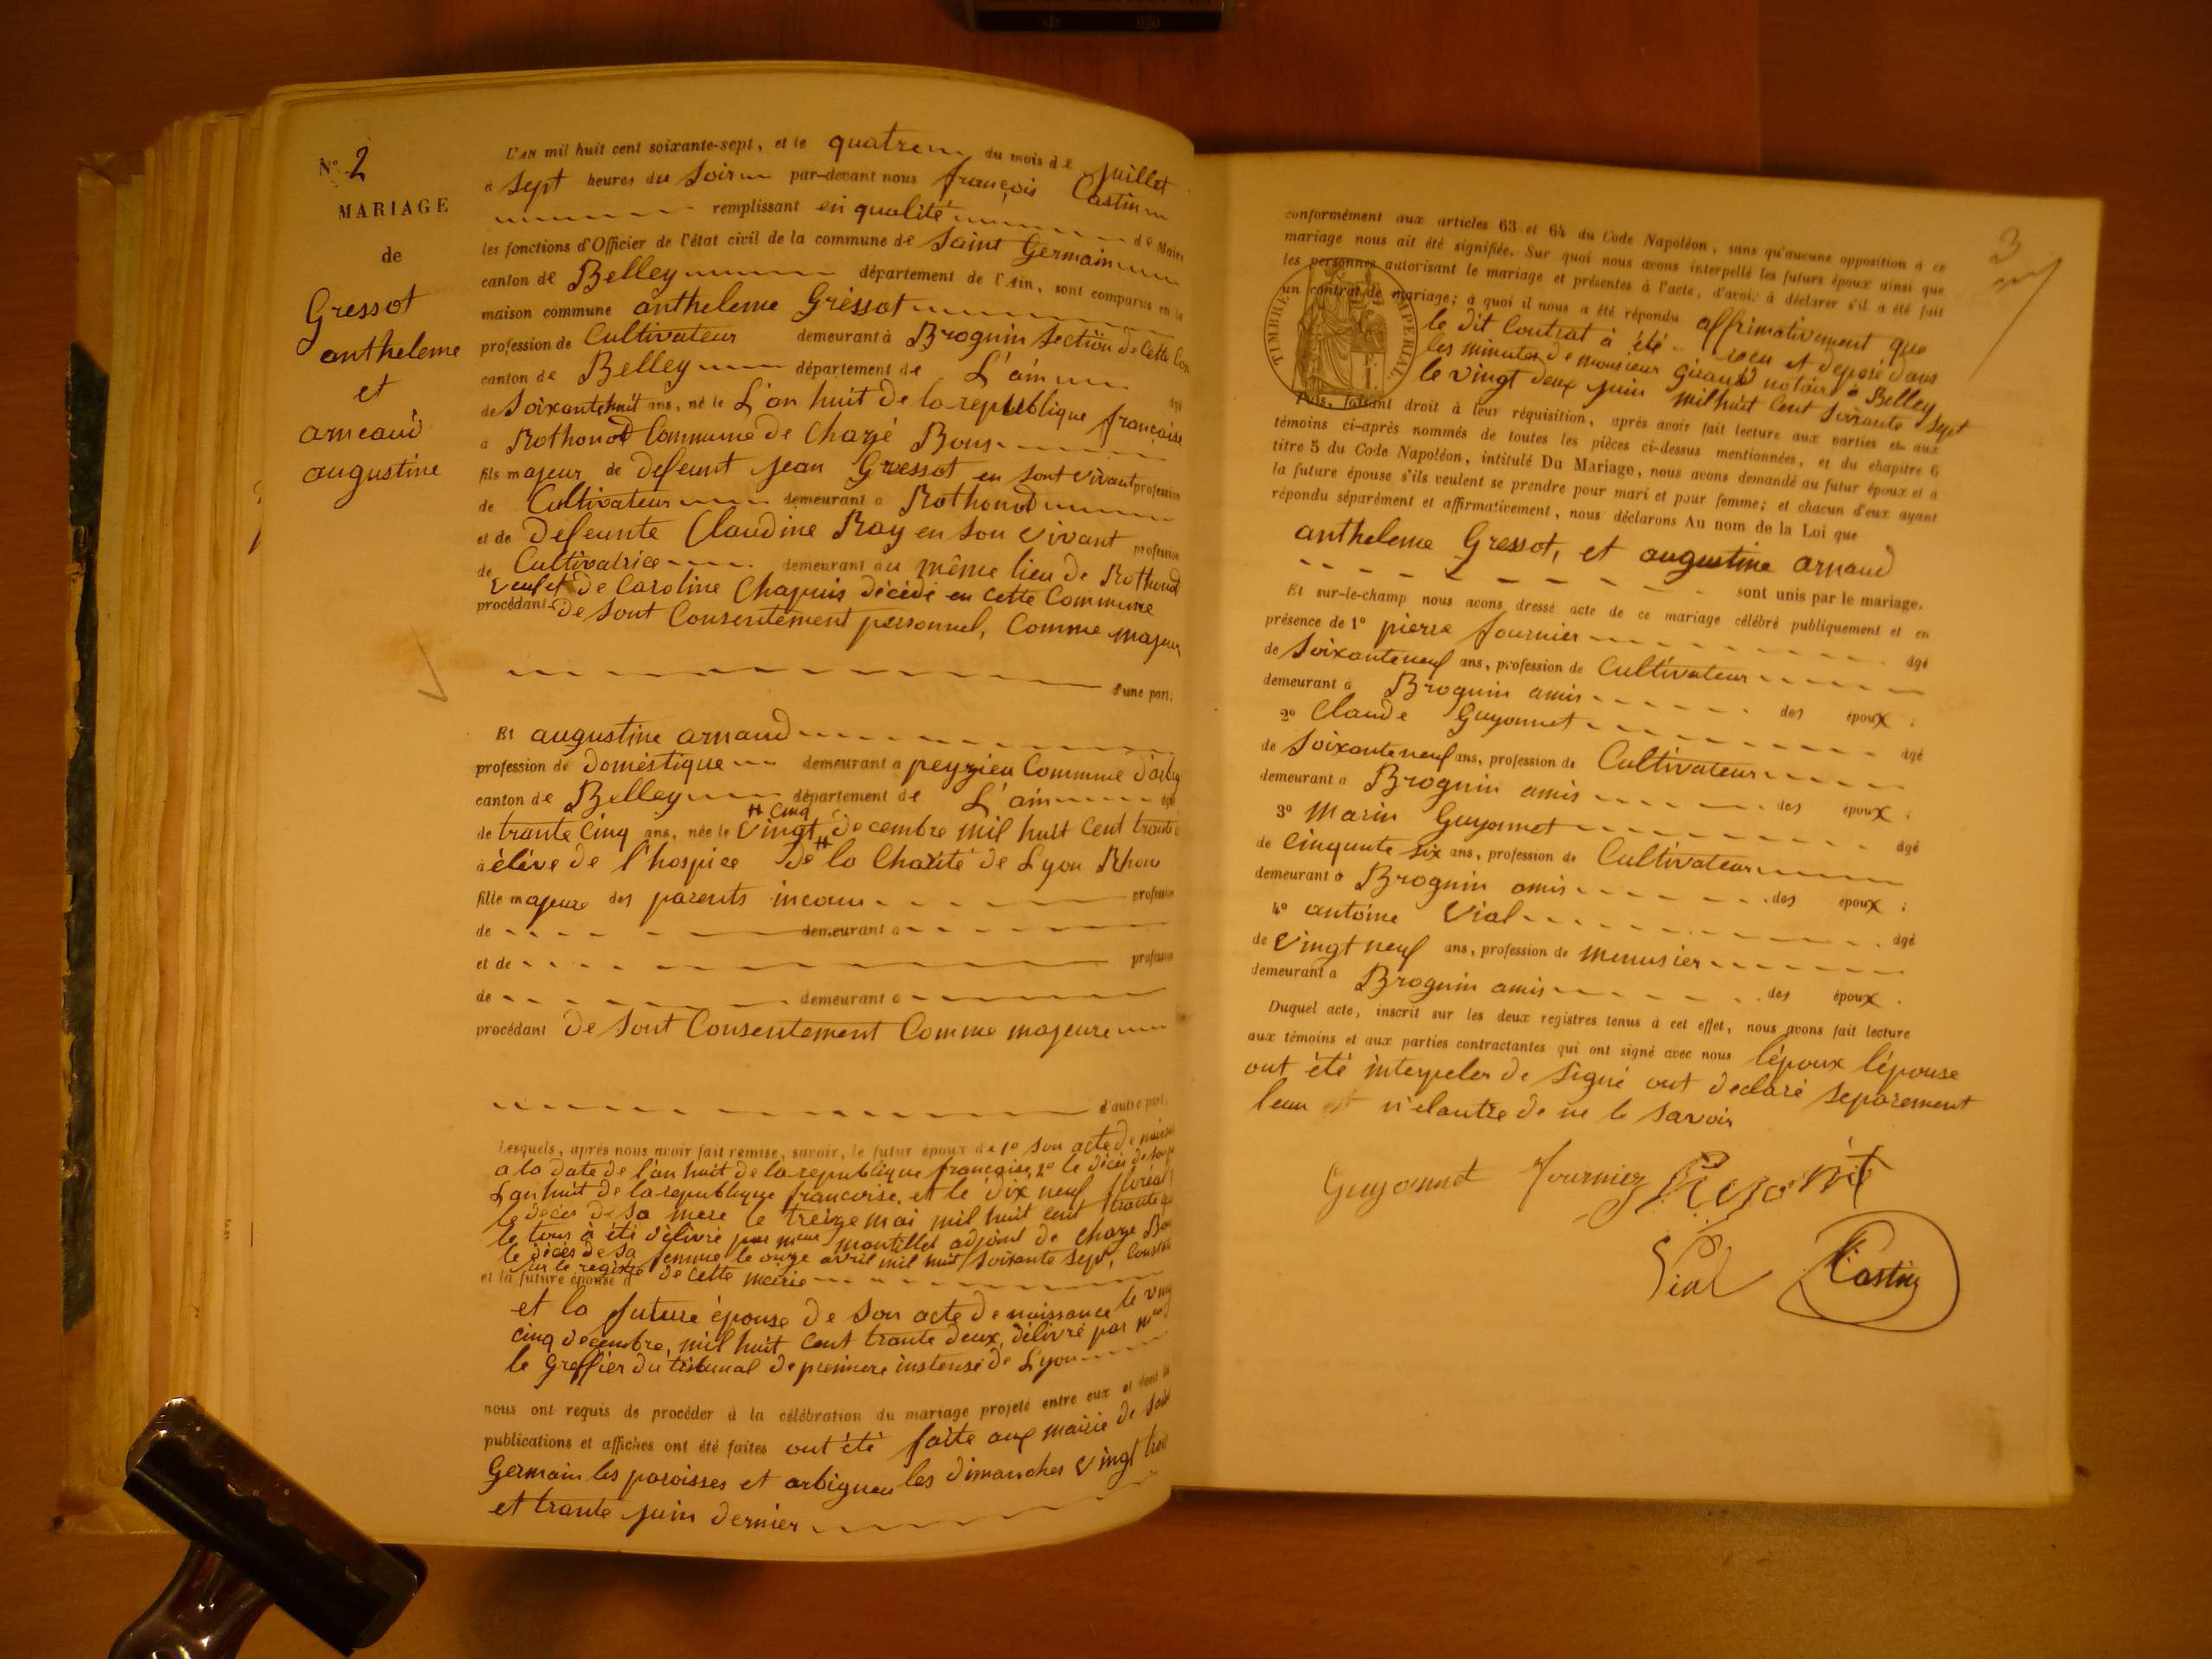 N° 2
MARIAGE
de
Gressot
antheleme
et
arneaud
augustine
L'AN mil huit cent soixante-sept, et le quatre du mois de juillet
à sept heures du soir par-devant nous françois Castin
remplissant en qualité de Maire
les fonctions d'Officier de l'état civil de la commune de Saint Germain
canton de Belley département de l'Ain, sont comparus en la
maison commune antheleme Gressot
profession de Cultivateur demeurant à Brognin Section de cette
canton de Belley département de L'ain âgé
de Soixante huit ans, né le L'an huit de la republique francaise
à Rothonod Commune de Chazé Bons
fils majeur de defeunt jean Gressot en sont vivant profession
de Cultivateur demeurant à Rothonod
et de defeunte Claudine Ray en son vivant profession
de Cultivatrice demeurant au même lieu de Rothonod
veuf de Caroline Chapuis décédé en cette Commune
procédant de sont Consentement personnel, Comme majeur
d'une part,
Et augustine arnaud
profession de domestique demeurant a peyzieu Commune
canton de Belley département de L'ain âgé
# Cinq
de trante Cinq ans, née le vingt # decembre mil huit Cent trante
à élève de l'hospice de la Charité de Lyon Rhone
fille majeure des parents inconu profession
de demeurant a
et de profession
de demeurant a
procédant de sont Consentement Comme majeure
d'autre part,
Lesquels, après nous avoir fait remise, savoir, le futur époux de 1° son acte de
a la date de l'an huit de la republique francaise, 2° le décès de son
L'an huit de la republique francaise, et le dix neuf floréal
le décès de sa mere le treize mai mil huit cent trante
le tous à été délivré par montillet adjoint de chaze
le décès de sa femme le onze avril mil huit soixante sept,
sur le registre de cette mairie
et la future épouse d
et la future épouse de son acte de naissance le
cinq decembre, mil huit cent trante deux, délivré par
le Greffier du tribunal de premiere instense de Lyon
nous ont requis de procéder à la célébration du mariage projeté entre eux et dont les
publications et affiches ont été faites ont été faite aux mairie de
Germain les paroisses et arbignieu les dimanches vingt trois
et trante juin dernier
3
conformément aux articles 63 et 64 du Code Napoléon, sans qu'aucune opposition à ce
mariage nous ait été signifiée. Sur quoi nous avons interpellé les futurs époux ainsi que
les personnes autorisant le mariage et présentes à l'acte, d'avoir à déclarer s'il a été fait
un contrat de mariage; à quoi il nous a été répondu affrimativement que
TIMBRE IMPERIAL
le dit Contrat à été reçu et deposé dans
les minutes de monsieur Giraud notaire à Belley
le vingt deux juin milhuit Cent soixante sept
Puis, faisant droit à leur réquisition, après avoir fait lecture aux parties et aux
témoins ci-après nommés de toutes les pièces ci-dessus mentionnées, et du chapitre 6
titre 5 du Code Napoléon, intitulé Du Mariage, nous avons demandé au futur époux et à
la future épouse s'ils veulent se prendre pour mari et pour femme; et chacun d'eux ayant
répondu séparément et affirmativement, nous déclarons Au nom de la Loi que
antheleme Gressot, et augustine arnaud
sont unis par le mariage.
Et sur-le-champ nous avons dressé acte de ce mariage célébré publiquement et en
présence de 1° pierre fournier âgé
de Soixante neuf ans, profession de Cultivateur
demeurant à Brognin amis des époux ;
2° Claude Guyonnet âgé
de Soixante neuf ans, profession de Cultivateur
demeurant a Brognin amis des époux ;
3° Marin Guyonnet âgé
de Cinquante six ans, profession de Cultivateur
demeurant a Brognin amis des époux ;
4° antoine Vial âgé
de vingt neuf ans, profession de menusier
demeurant a Brognin amis des époux .
Duquel acte, inscrit sur les deux registres tenus à cet effet, nous avons fait lecture
aux témoins et aux parties contractantes qui ont signé avec nous l'époux l'épouse
ont été interpeler de signé ont declaré séparement
de ne le savoir
Guyonnet fournier
Vial Castin